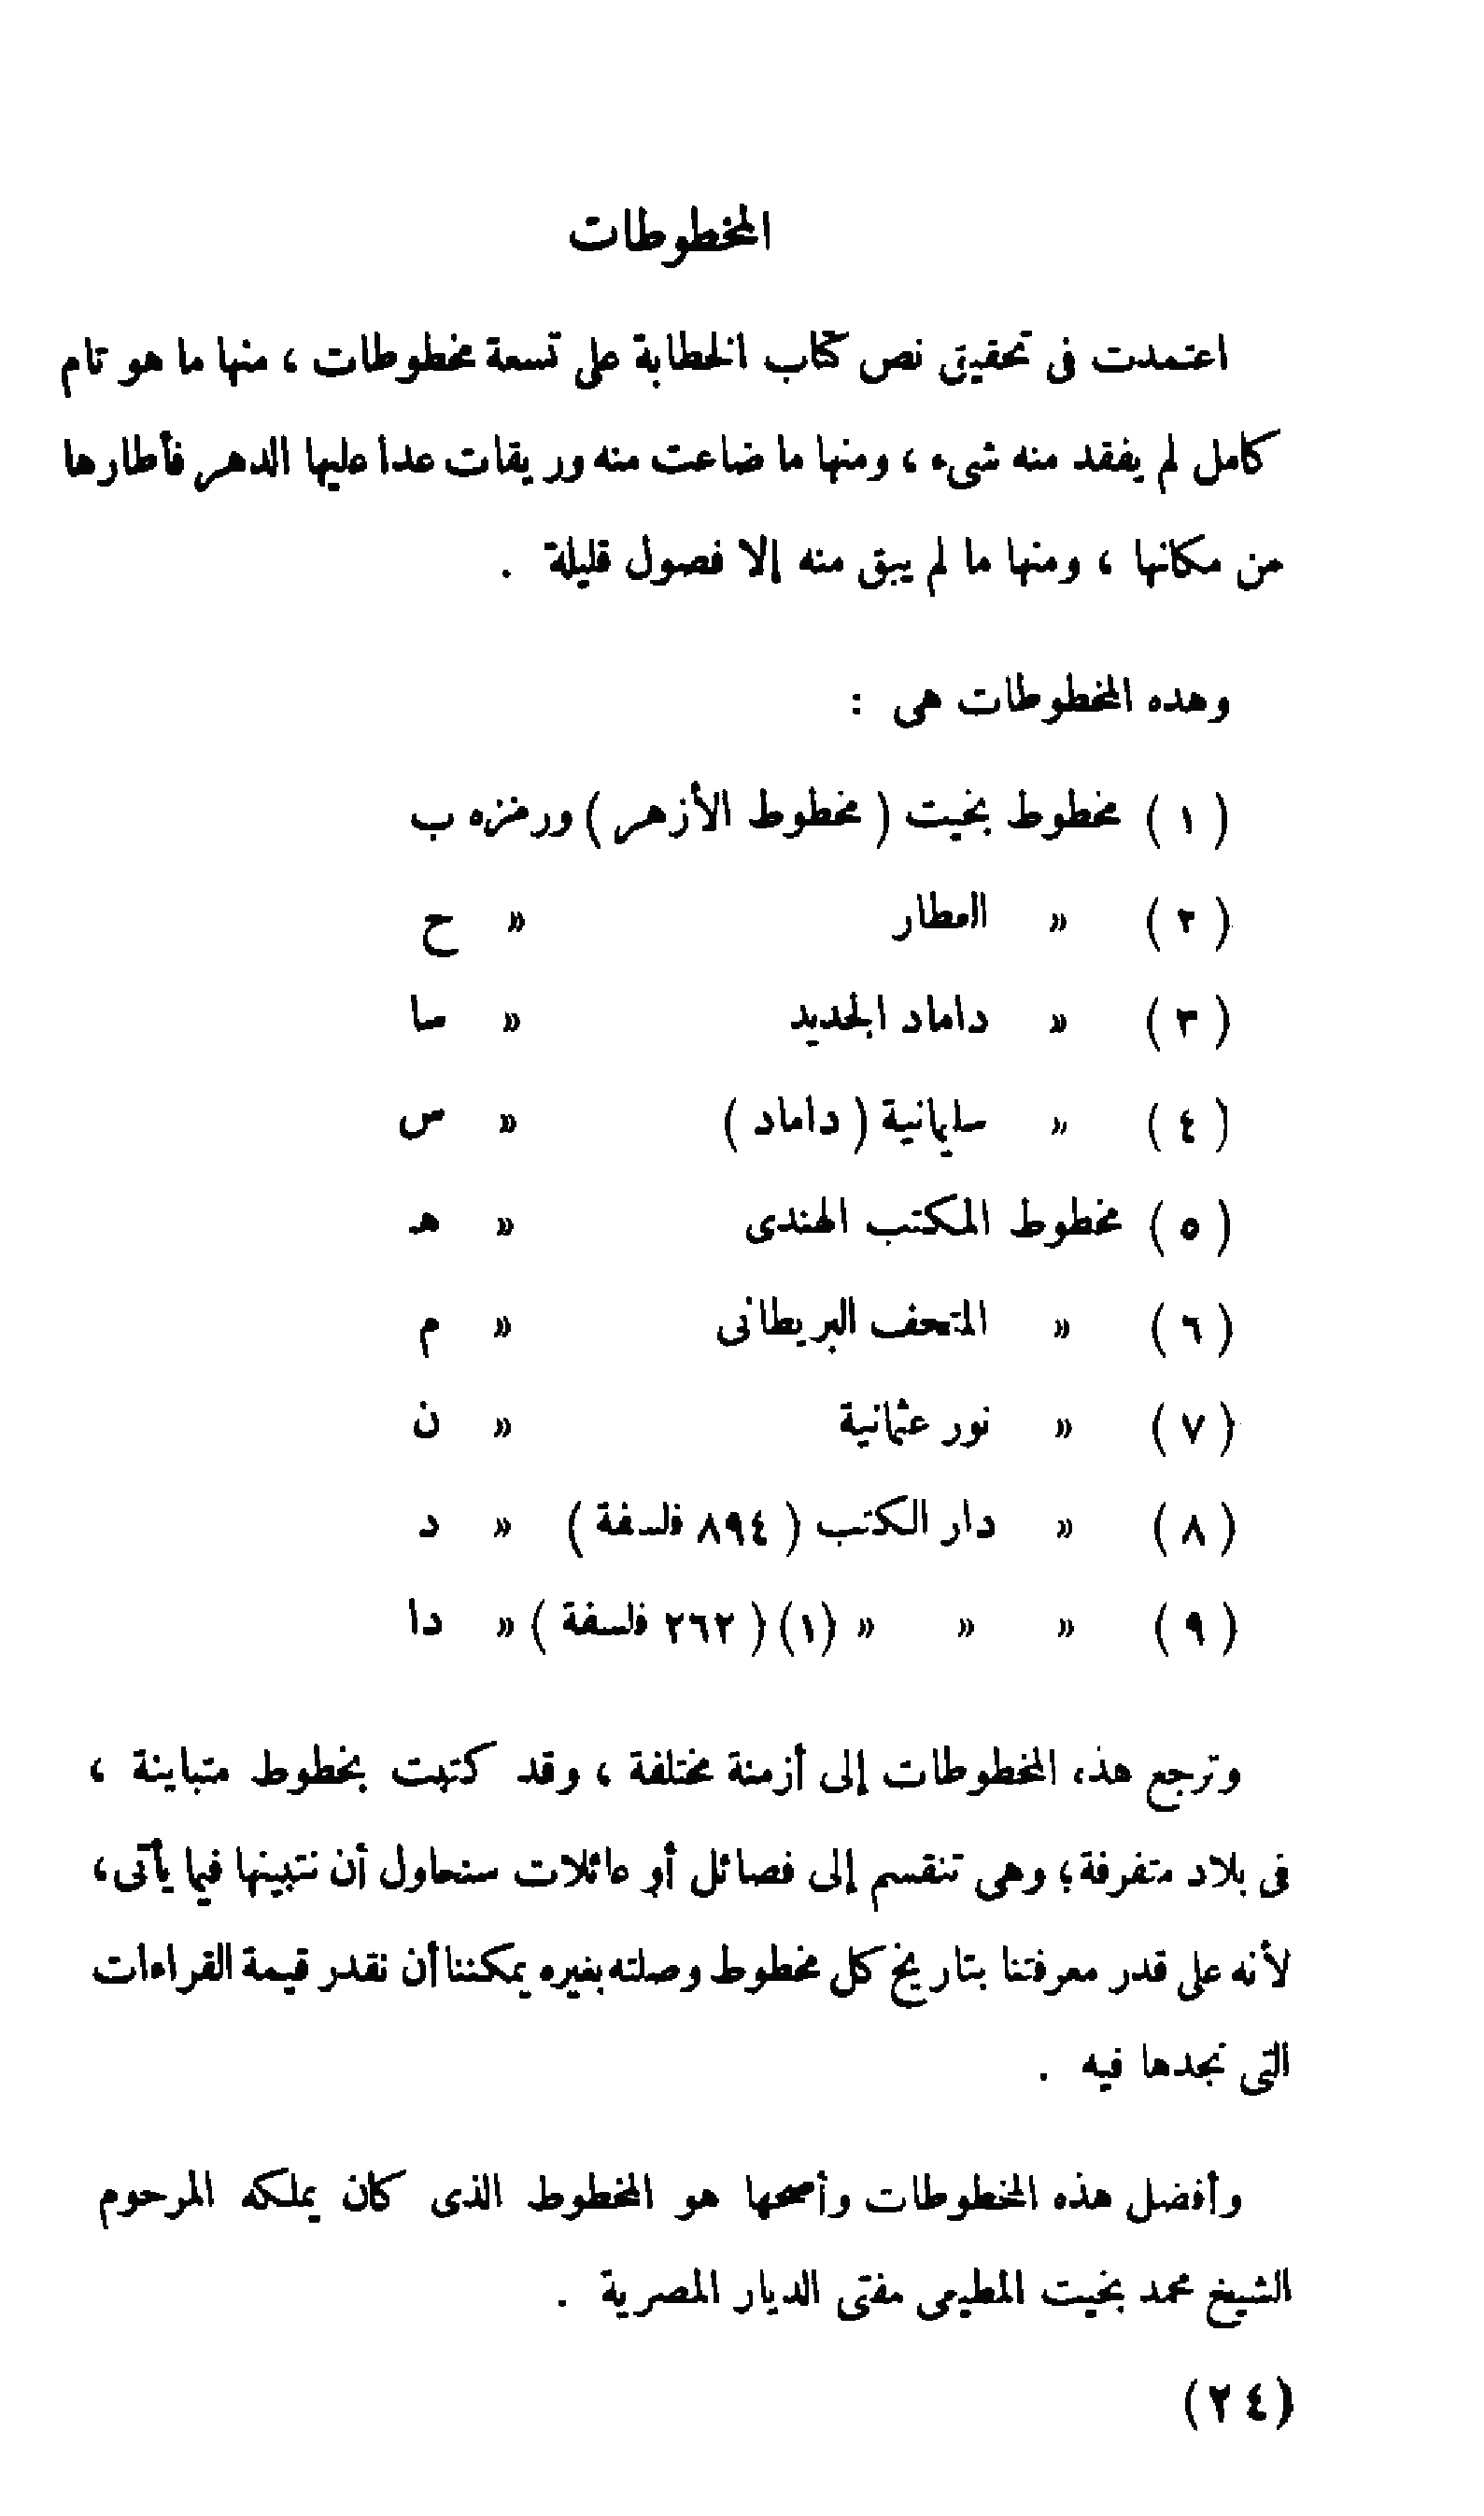 المخطوطات
اعتمدت فى تحقيق نص كتاب الخطابة على تسعة مخطوطات ، منها ما هو تام
كامل لم يفقد منه شىء ، ومنها ما ضاعت منه وريقات عدا عليها الدهر فأطارها
من مكانها ، ومنها ما لم يبق منه إلا فصول قليلة .
وهذه المخطوطات هى :
( ١ ) مخطوط بخيت ( مخطوط الأزهر ) ورمزه ب
( ٢ ) « العطار « ح
( ٣ ) « داماد الجديد « سا
( ٤ ) « سليمانية ( داماد ) « س
( ٥ ) مخطوط المكتب الهندى « هـ
( ٦ ) « المتحف البريطانى « م
( ٧ ) « نور عثمانية « ن
( ٨ ) « دار الكتب ( ٨٩٤ فلسفة ) « د
( ٩ ) « « « (١) ( ٢٦٢ فلسفة ) « دا
وترجع هذه المخطوطات إلى أزمنة مختلفة ، وقد كتبت بخطوط متباينة ،
فى بلاد متفرقة ؛ وهى تنقسم إلى فصائل أو عائلات سنحاول أن نتبينها فيما يأتى ،
لأنه على قدر معرفتنا بتاريخ كل مخطوط وصلته بغيره يمكننا أن نقدر قيمة القراءات
التى نجدها فيه .
وأفضل هذه المخطوطات وأصحها هو المخطوط الذى كان يملكه المرحوم
الشيخ محمد بخيت المطيعى مفتى الديار المصرية .
(٢٤)